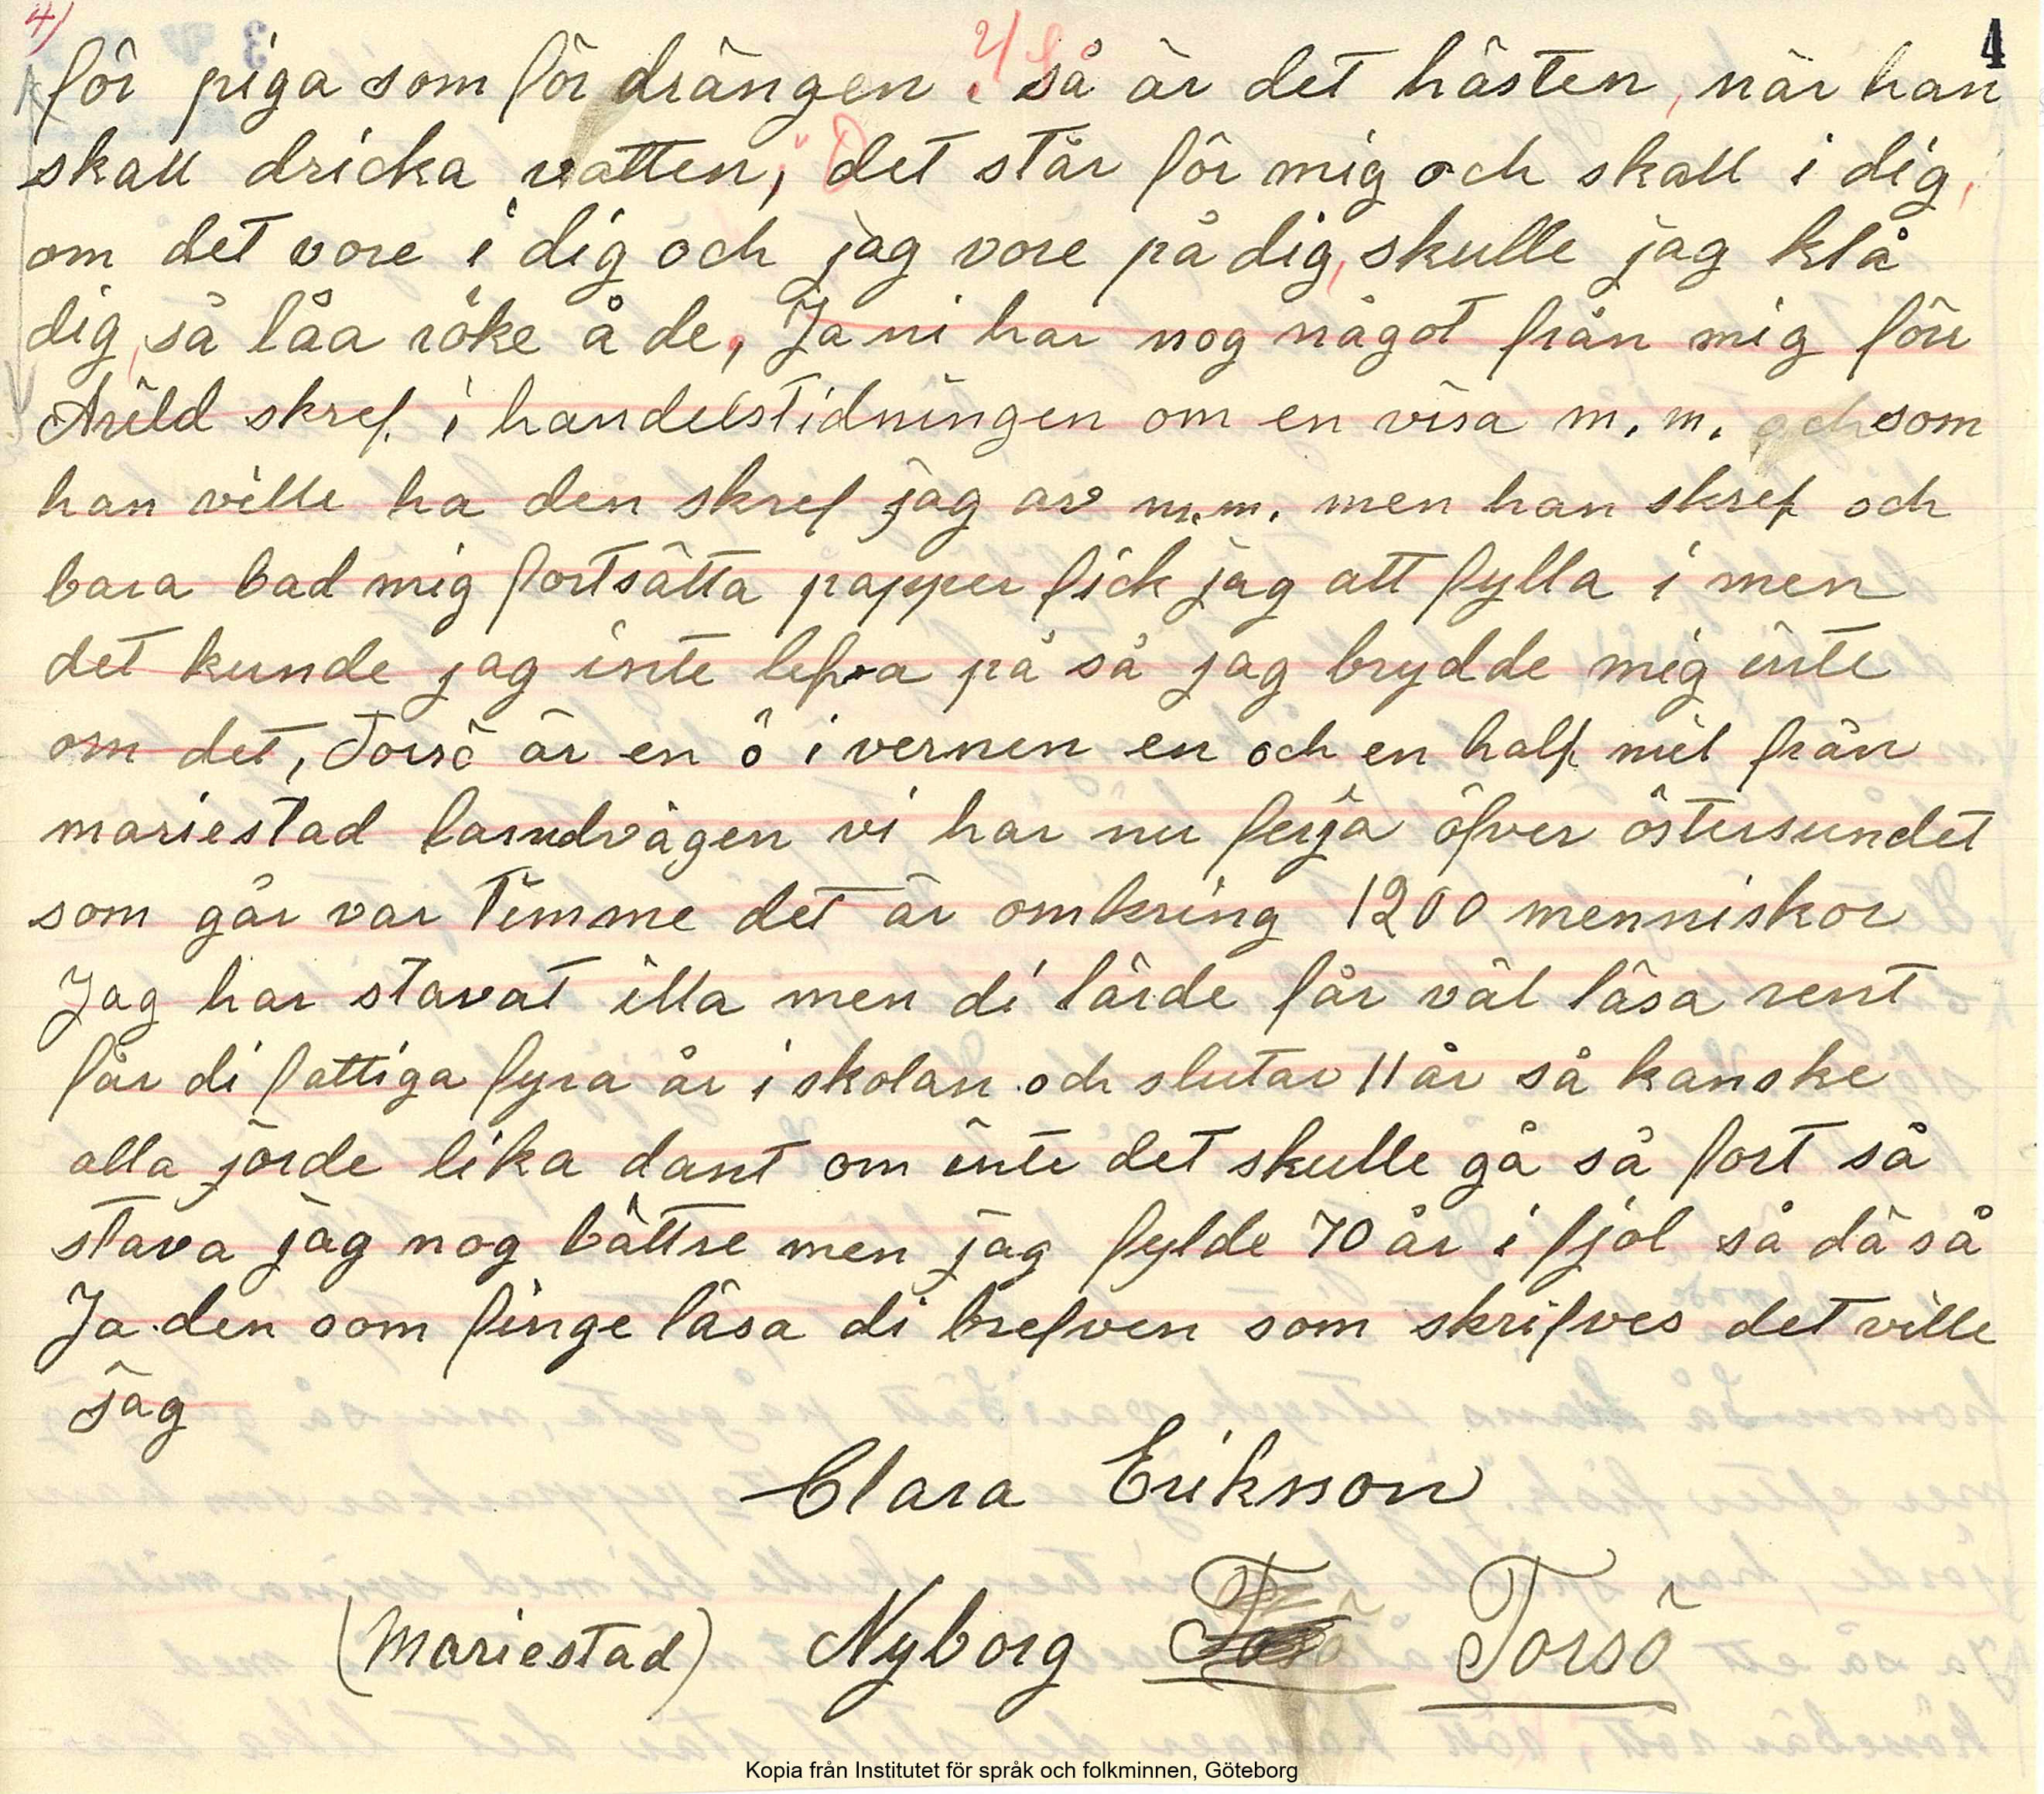 4) 4
för piga som för drängen. så är det hästen, när han
skall dricka vatten, det står för mig och skall i dig,
om det vore i dig och jag vore på dig, skulle jag klå
dig, så låa röke å de, Ja ni har nog något från mig förr
Arild skref i handelstidningen om en visa m. m. och som
han ville ha den skref jag av m.m. men han skref och
bara bad mig fortsätta papper fick jag att fylla i men
det kunde jag inte lefva på så jag brydde mig inte
om det, Torsö är en ö i vernen en och en half mil från
mariestad landvägen vi har nu ferja öfver östersundet
som går var Timme det är omkring 1200 menniskor
Jag har stavat illa men di lärde får väl läsa rent
får di fattiga fyra år i skolan och slutar 11 år så kanske
alla jörde lika dant om inte det skulle gå så fort så
stava jag nog bättre men jag fylde 70 år i fjol så dä så
Ja den som finge läsa di brefven som skrifves det ville
jag
Clara Eriksson
(Mariestad) Nyborg Torsö
Kopia från Institutet för språk och folkminnen, Göteborg